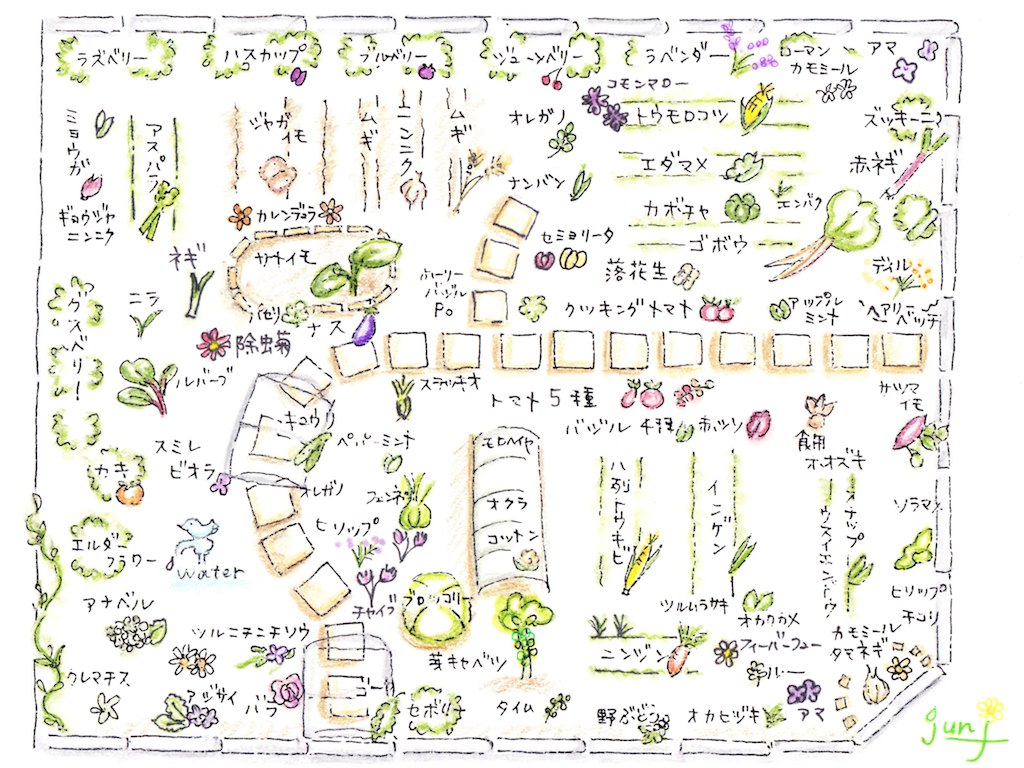 ラズベリー
ハスカップ
ブルベリー
ジューンベリー
ラベンダー
ローマン
カモミール
アマ
コモンマロー
ミョウガ
アスパラ
ジャガ
イモ
ムギ
ニンニク
ムギ
オレガノ
トウモロコシ
ズッキーニ
エダマメ
赤ネギ
ナンバン
ギョウジャ
ニンニク
カレンデュラ
カボチャ
エンバク
セミヨリータ
ゴボウ
ネギ
サトイモ
ホーリー
バジル
Po
落花生
ディル
グスベリー
ニラ
パセリ
ナス
クッキングトマト
アップル
ミント
ヘアリーベッチ
除虫菊
ルバーブ
ズッキオ
トマト5種
サツマ
イモ
キュウリ
バジル4種
ホオズキ
食用
スミレ
ビオラ
ペパーミント
モロヘイヤ
カキ
オレガノ
フェンネル
オクラ
八列トウキビ
インゲン
ソラマメ
ヒソップ
コットン
エルダー
フラワー
water
チャイブ
ブロッコリー
ツルムラサキ
ヒソップ
チコリ
アナベル
オカワカメ
ツルニチニチソウ
カモミール
タマネギ
芽キャベツ
ニンジン
フィーバーフュー
ルー
クレマチス
アジサイ
バラ
ゴーヤ
セボリー
タイム
野ぶどう
オカヒジキ
アマ
junj